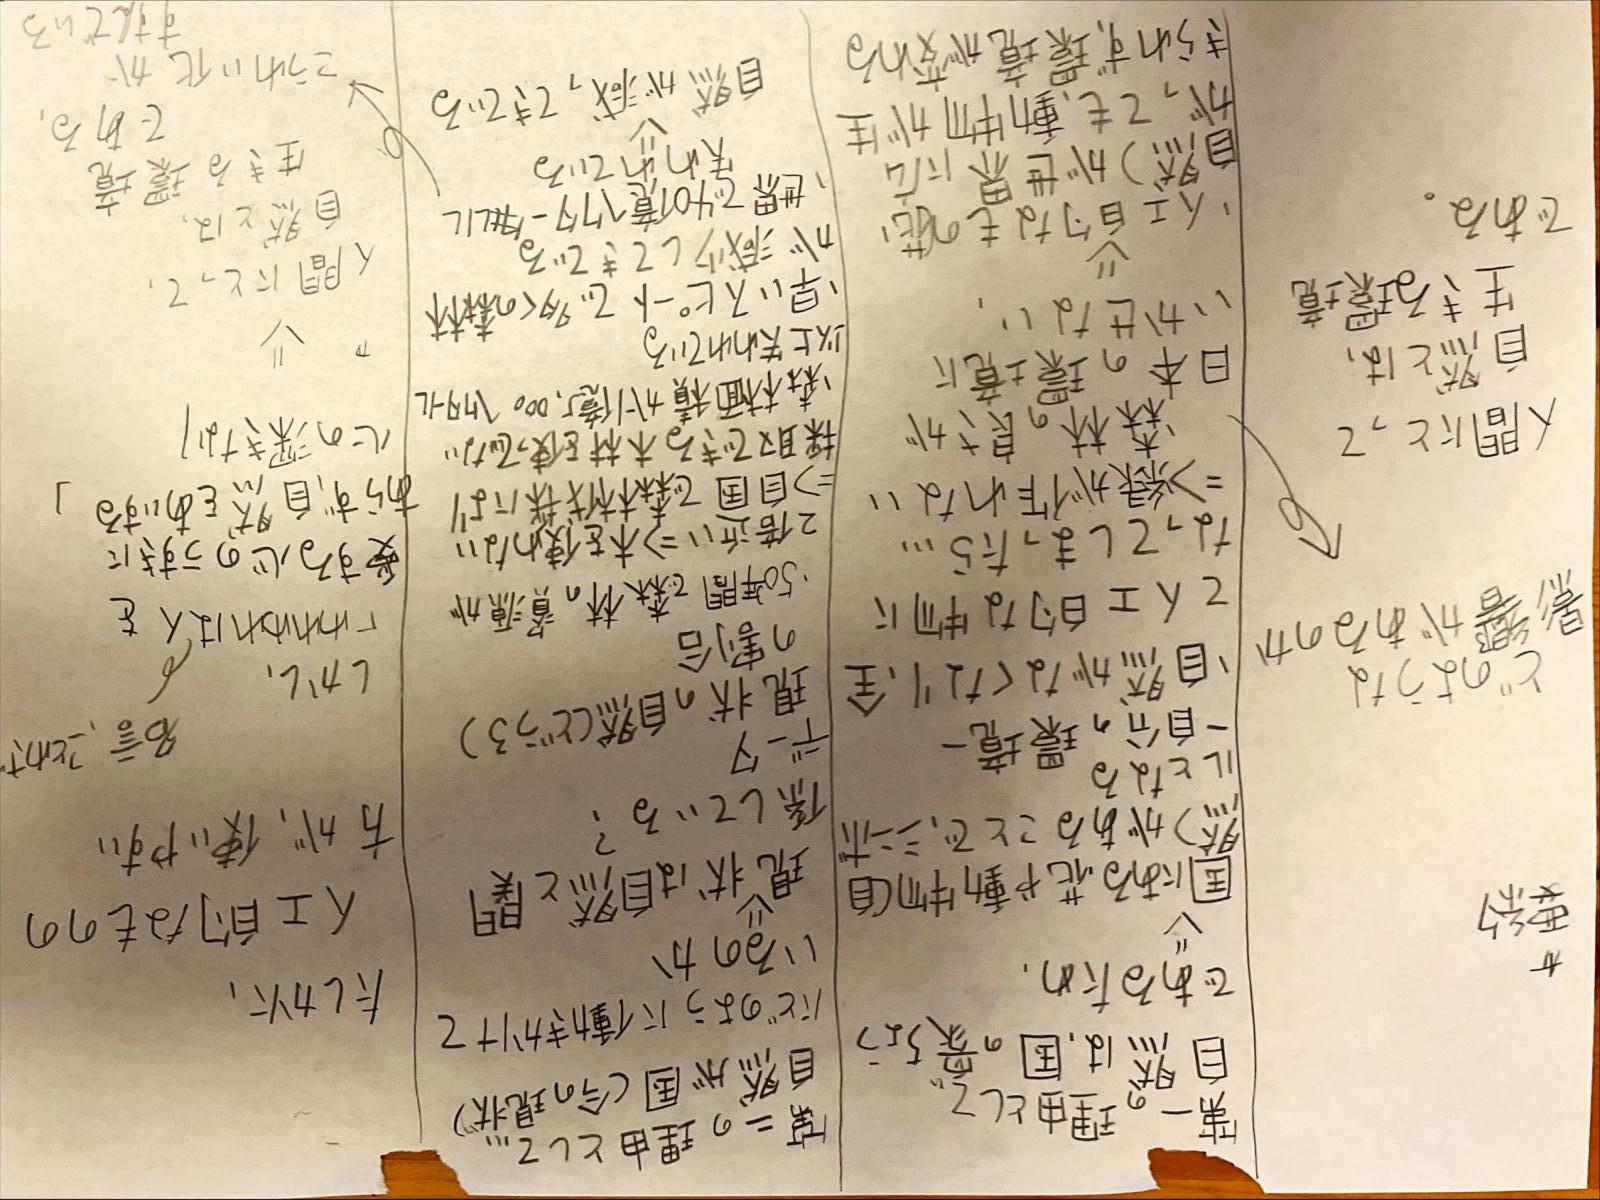 #
要約
どのような
影響があるのか
人間にとって
自然とは、
生きる環境
である。
第一の理由として
自然は、国の象ちょう
であるため、
⇓
国にある花や動物(自
然)があることで、シンボ
ルとなる
ー自分の環境ー
、自然がなくなり、全
て人工的な物に
なってしまったら…
⇒緑が作れない
、森林の良さが
日本の環境に
いかせない、
⇓
、人工的なもの(悲
自然)が世界に広
がっても、動物が生
きられず、環境が変わる
第二の理由として…
自然が国(今の現状)
にどのように働きかけて
いるのか
⇓
現状は自然と関
係している?
データ
現状の自然(どうろ)
の割合
、50年間で森林の資源が
2倍近い⇒木を使わない
⇒自国で森林伐採により
採取できる木材を使ってない
、森林面積が1億5,000ヘクタール
以上失われている
、早いスピードで多くの森林
が減少してきている
、世界で40億ヘクタール
失われている
⇓
自然が減ってきている
たしかに、
人工的なものの
方が、使いやすい
しかし、
名言、ことわざ
「われわれは人を
愛する心のうすきに
あらず、自然をあいする
心の深きなり」
⇓
人間にとって、
自然とは、
生きる環境
である、
こうれい化が
すすんでいる